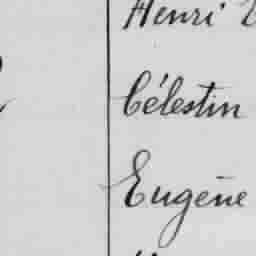 Henri
Célestin
Eugène